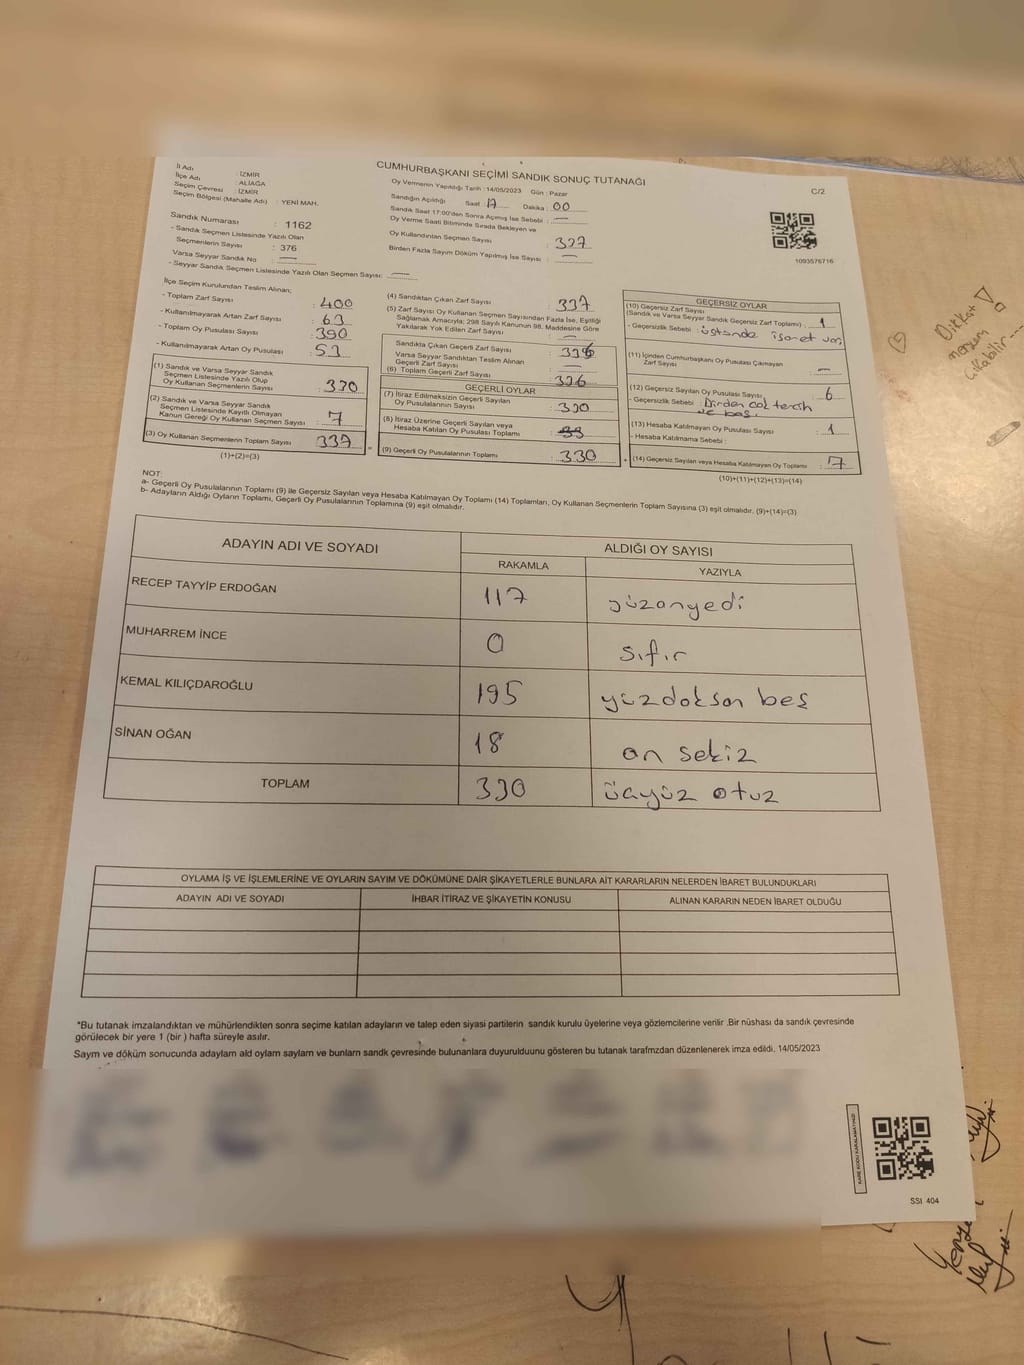 CUMHURBAŞKANI SEÇİMİ SANDIK SONUÇ TUTANAĞI
C/2
İl Adı : İZMİR
İlçe Adı : ALİAĞA
Seçim Çevresi : İZMİR
Seçim Bölgesi (Mahalle Adı) : YENİ MAH.
Sandık Numarası : 1162
- Sandık Seçmen Listesinde Yazılı Olan
Seçmenlerin Sayısı : 376
Varsa Seyyar Sandık No : —
- Seyyar Sandık Seçmen Listesinde Yazılı Olan Seçmen Sayısı: —
Oy Vermenin Yapıldığı Tarih :14/05/2023 Gün : Pazar
Sandığın Açıldığı Saat : 17 Dakika : 00
Sandık Saat 17:00'den Sonra Açılmış İse Sebebi : —
Oy Verme Saati Bitiminde Sırada Bekleyen ve
Oy Kullandırılan Seçmen Sayısı : 337
Birden Fazla Sayım Döküm Yapılmış İse Sayısı : —
1093576716
İlçe Seçim Kurulundan Teslim Alınan;
- Toplam Zarf Sayısı : 400
- Kullanılmayarak Artan Zarf Sayısı : 63
- Toplam Oy Pusulası Sayısı : 390
- Kullanılmayarak Artan Oy Pusulası : 53
(1) Sandık ve Varsa Seyyar Sandık
Seçmen Listesinde Yazılı Olup
Oy Kullanan Seçmenlerin Sayısı : 330
(2) Sandık ve Varsa Seyyar Sandık
Seçmen Listesinde Kayıtlı Olmayan
Kanun Gereği Oy Kullanan Seçmen Sayısı : 7
(3) Oy Kullanan Seçmenlerin Toplam Sayısı : 337
(1)+(2)=(3)
(4) Sandıktan Çıkan Zarf Sayısı : 337
(5) Zarf Sayısı Oy Kullanan Seçmen Sayısından Fazla İse, Eşitliği
Sağlamak Amacıyla; 298 Sayılı Kanunun 98. Maddesine Göre
Yakılarak Yok Edilen Zarf Sayısı : —
Sandıkta Çıkan Geçerli Zarf Sayısı : 336
Varsa Seyyar Sandıktan Teslim Alınan
Geçerli Zarf Sayısı : —
(6) Toplam Geçerli Zarf Sayısı : 336
GEÇERLİ OYLAR
(7) İtiraz Edilmeksizin Geçerli Sayılan
Oy Pusulalarının Sayısı : 330
(8) İtiraz Üzerine Geçerli Sayılan veya
Hesaba Katılan Oy Pusulası Toplamı :
(9) Geçerli Oy Pusulalarının Toplamı : 330
GEÇERSİZ OYLAR
(10) Geçersiz Zarf Sayısı
(Sandık ve Varsa Seyyar Sandık Geçersiz Zarf Toplamı) : 1
- Geçersizlik Sebebi : üstünde işaret var
(11) İçinden Cumhurbaşkanı Oy Pusulası Çıkmayan
Zarf Sayısı : —
(12) Geçersiz Sayılan Oy Pusulası Sayısı : 6
- Geçersizlik Sebebi : birden çok tercih
ve boş.
(13) Hesaba Katılmayan Oy Pusulası Sayısı : 1
- Hesaba Katılmama Sebebi :
(14) Geçersiz Sayılan veya Hesaba Katılmayan Oy Toplamı : 7
(10)+(11)+(12)+(13)=(14)
Dikkat
NOT:
a- Geçerli Oy Pusulalarının Toplamı (9) ile Geçersiz Sayılan veya Hesaba Katılmayan Oy Toplamı (14) Toplamları, Oy Kullanan Seçmenlerin Toplam Sayısına (3) eşit olmalıdır. (9)+(14)=(3)
b- Adayların Aldığı Oyların Toplamı, Geçerli Oy Pusulalarının Toplamına (9) eşit olmalıdır.
ADAYIN ADI VE SOYADI
ALDIĞI OY SAYISI
RAKAMLA YAZIYLA
RECEP TAYYİP ERDOĞAN 117 yüzonyedi
MUHARREM İNCE 0 sıfır
KEMAL KILIÇDAROĞLU 195 yüzdoksan beş
SİNAN OĞAN 18 on sekiz
TOPLAM 330 üçyüz otuz
OYLAMA İŞ VE İŞLEMLERİNE VE OYLARIN SAYIM VE DÖKÜMÜNE DAİR ŞİKAYETLERLE BUNLARA AİT KARARLARIN NELERDEN İBARET BULUNDUKLARI
ADAYIN ADI VE SOYADI İHBAR İTİRAZ VE ŞİKAYETİN KONUSU ALINAN KARARIN NEDEN İBARET OLDUĞU
*Bu tutanak imzalandıktan ve mühürlendikten sonra seçime katılan adayların ve talep eden siyasi partilerin sandık kurulu üyelerine veya gözlemcilerine verilir .Bir nüshası da sandık çevresinde
görülecek bir yere 1 (bir ) hafta süreyle asılır.
Sayım ve döküm sonucunda adaylam ald oylam saylam ve bunlam sandk çevresinde bulunanlara duyurulduunu gösteren bu tutanak tarafmzdan düzenlenerek imza edildi. 14/05/2023
KARE KODU KARALAMAYINIZ!
SSI 404